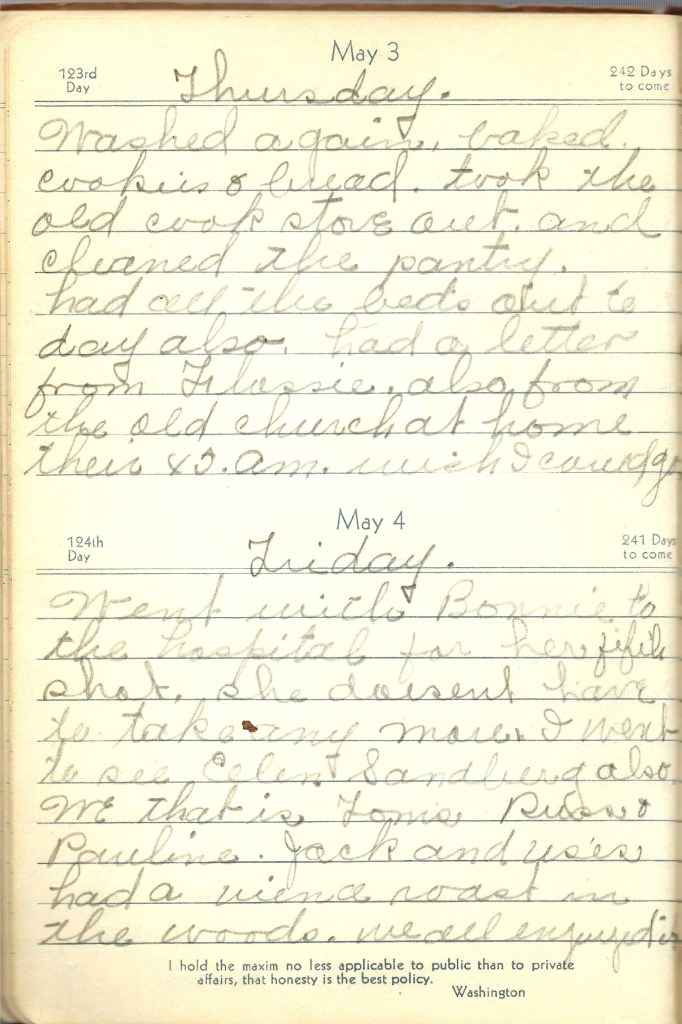 May 3
123rd
Day
242 Days
to come
Thursday.
Washed again, baked.
cookies & bread. took the
old cook stove out. and
cleaned the pantry.
had all the beds out to
day also. had a letter
from Flossie. also from
the old church at home
their wish I could go
May 4
124th
Day
241 Days
to come
Friday.
Went with Bonnie to
the hospital for her fifth
shot. she doesent have
to take any more. I went
to see Celen Sandberg also.
WE that is Toms Russ &
Pauline. Jack and us'es
had a wiena roast in
the woods. we all enjoyed it
I hold the maxim no less applicable to public than to private
affairs, that honesty is the best policy.
Washington